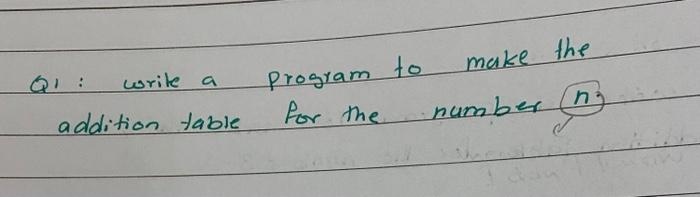 Q1 : write a program to make the
addition table for the number n